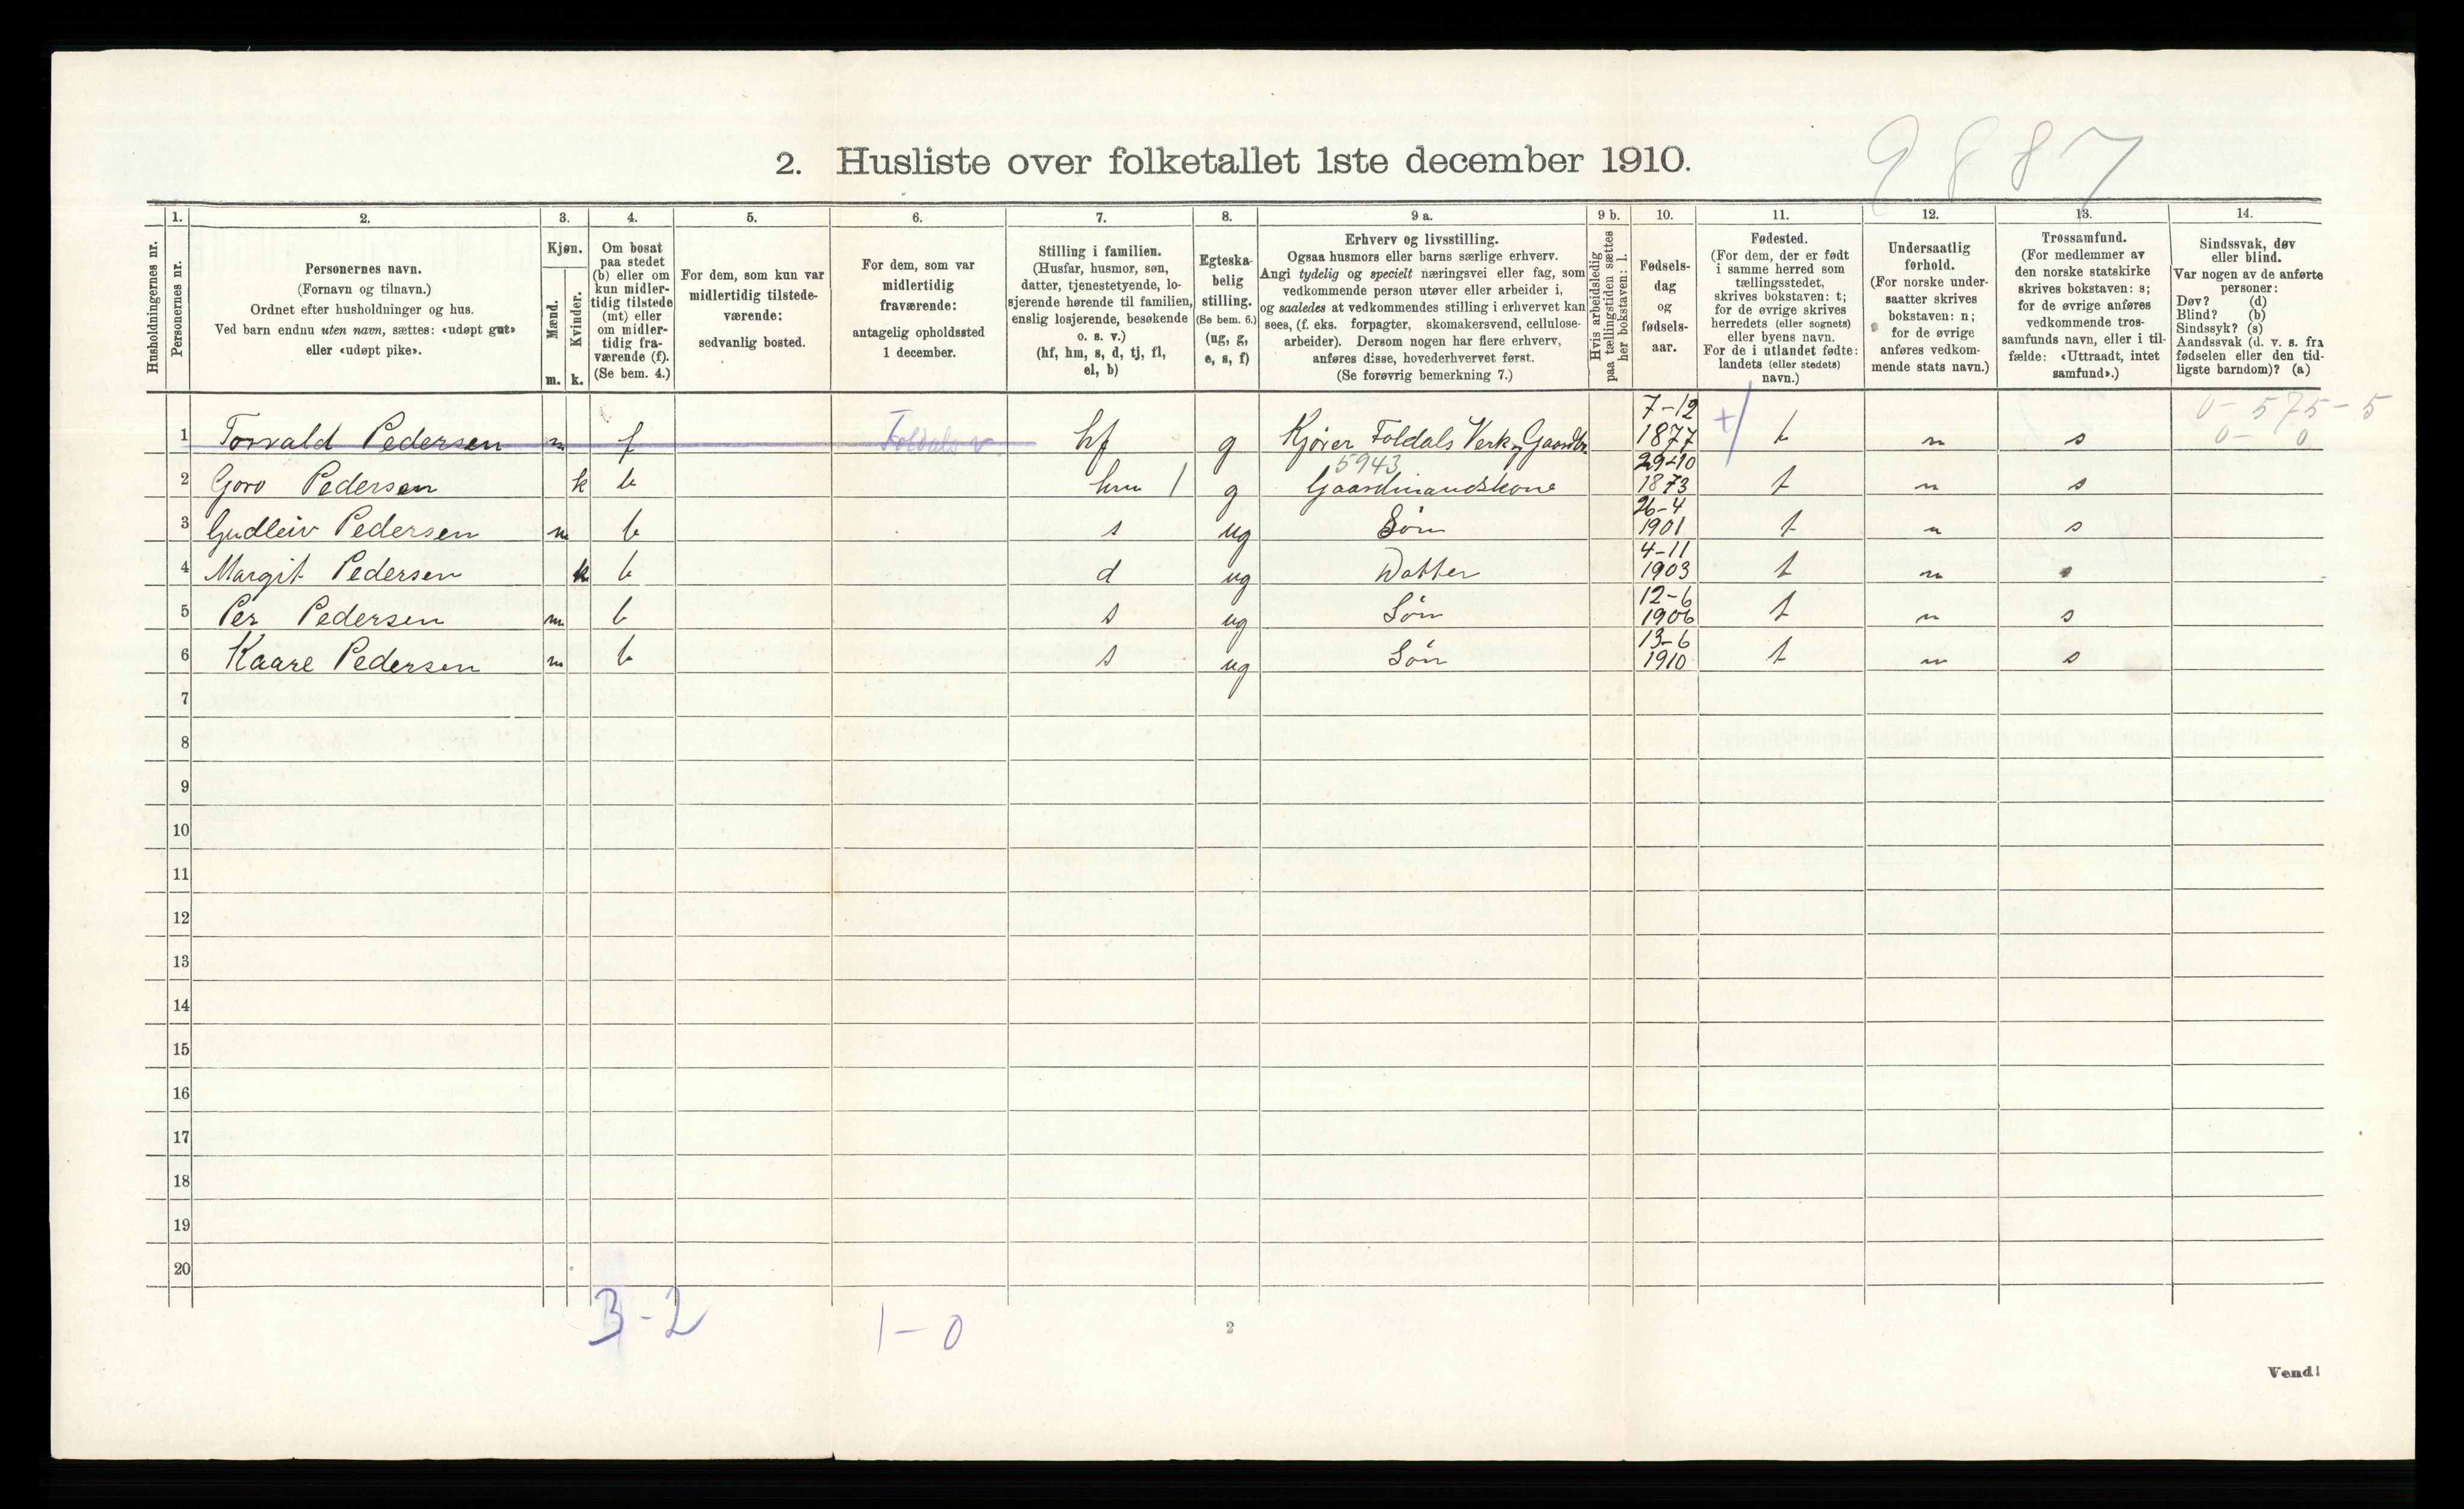 9887
2. Husliste over folketallet 1ste december 1910.
Husholdningernes nr.
1. Personernes nr.
2. Personernes navn.
(Fornavn og tilnavn.)
Ordnet efter husholdninger og hus.
Ved barn endnu uten navn, sættes: «udøpt gut»
eller «udøpt pike».
3. Kjøn.
Mænd. m.
Kvinder. k.
4. Om bosat
paa stedet
(b) eller om
kun midler-
tidig tilstede
(mt) eller
om midler-
tidig fra-
værende (f).
(Se bem. 4.)
5. For dem, som kun var
midlertidig tilstede-
værende:
sedvanlig bosted.
6. For dem, som var
midlertidig
fraværende:
antagelig opholdssted
1 december.
7. Stilling i familien.
(Husfar, husmor, søn,
datter, tjenestetyende, lo-
sjerende hørende til familien,
enslig losjerende, besøkende
o. s. v.)
(hf, hm, s, d, tj, fl,
el, b)
8. Egteska-
belig
stilling.
(Se bem. 6.)
(ug, g,
e, s, f)
9 a. Erhverv og livsstilling.
Ogsaa husmors eller barns særlige erhverv.
Angi tydelig og specielt næringsvei eller fag, som
vedkommende person utøver eller arbeider i,
og saaledes at vedkommendes stilling i erhvervet kan
sees, (f. eks. forpagter, skomakersvend, cellulose-
arbeider). Dersom nogen har flere erhverv,
anføres disse, hovederhvervet først.
(Se forøvrig bemerkning 7.)
9 b. Hvis arbeidsledig
paa tællingstiden sættes
her bokstaven: l.
10. Fødsels-
dag
og
fødsels-
aar.
11. Fødested.
(For dem, der er født
i samme herred som
tællingsstedet,
skrives bokstaven: t;
for de øvrige skrives
herredets (eller sognets)
eller byens navn.
For de i utlandet fødte:
landets (eller stedets)
navn.)
12. Undersaatlig
forhold.
(For norske under-
saatter skrives
bokstaven: n;
for de øvrige
anføres vedkom-
mende stats navn.)
13. Trossamfund.
(For medlemmer av
den norske statskirke
skrives bokstaven: s;
for de øvrige anføres
vedkommende tros-
samfunds navn, eller i til-
fælde: «Uttraadt, intet
samfund».)
14. Sindssvak, døv
eller blind.
Var nogen av de anførte
personer:
Døv? (d)
Blind? (b)
Sindssyk? (s)
Aandssvak (d. v. s. fra
fødselen eller den tid-
ligste barndom)? (a)
0-575-5
0- 0
1 Torvald Pedersen m f Foldals v. hf g Kjører Foldals Verk og Gaardbr. 7-12 1877 t n s
5943
2 Goro Pedersen k b hm 1 g Gaardmandskone 29-10 1873 t n s
3 Gudleiv Pedersen m b s ug Søn 26-4 1901 t n s
4 Margit Pedersen k b d ug Datter 4-11 1903 t n
5 Per Pedersen m b s ug Søn 12-6 1906 t n s
6 Kaare Pedersen m b s ug Søn 13-6 1910 t n s
7
8
9
10
11
12
13
14
15
16
17
18
19
20
3-2 1-0
2
Vend!